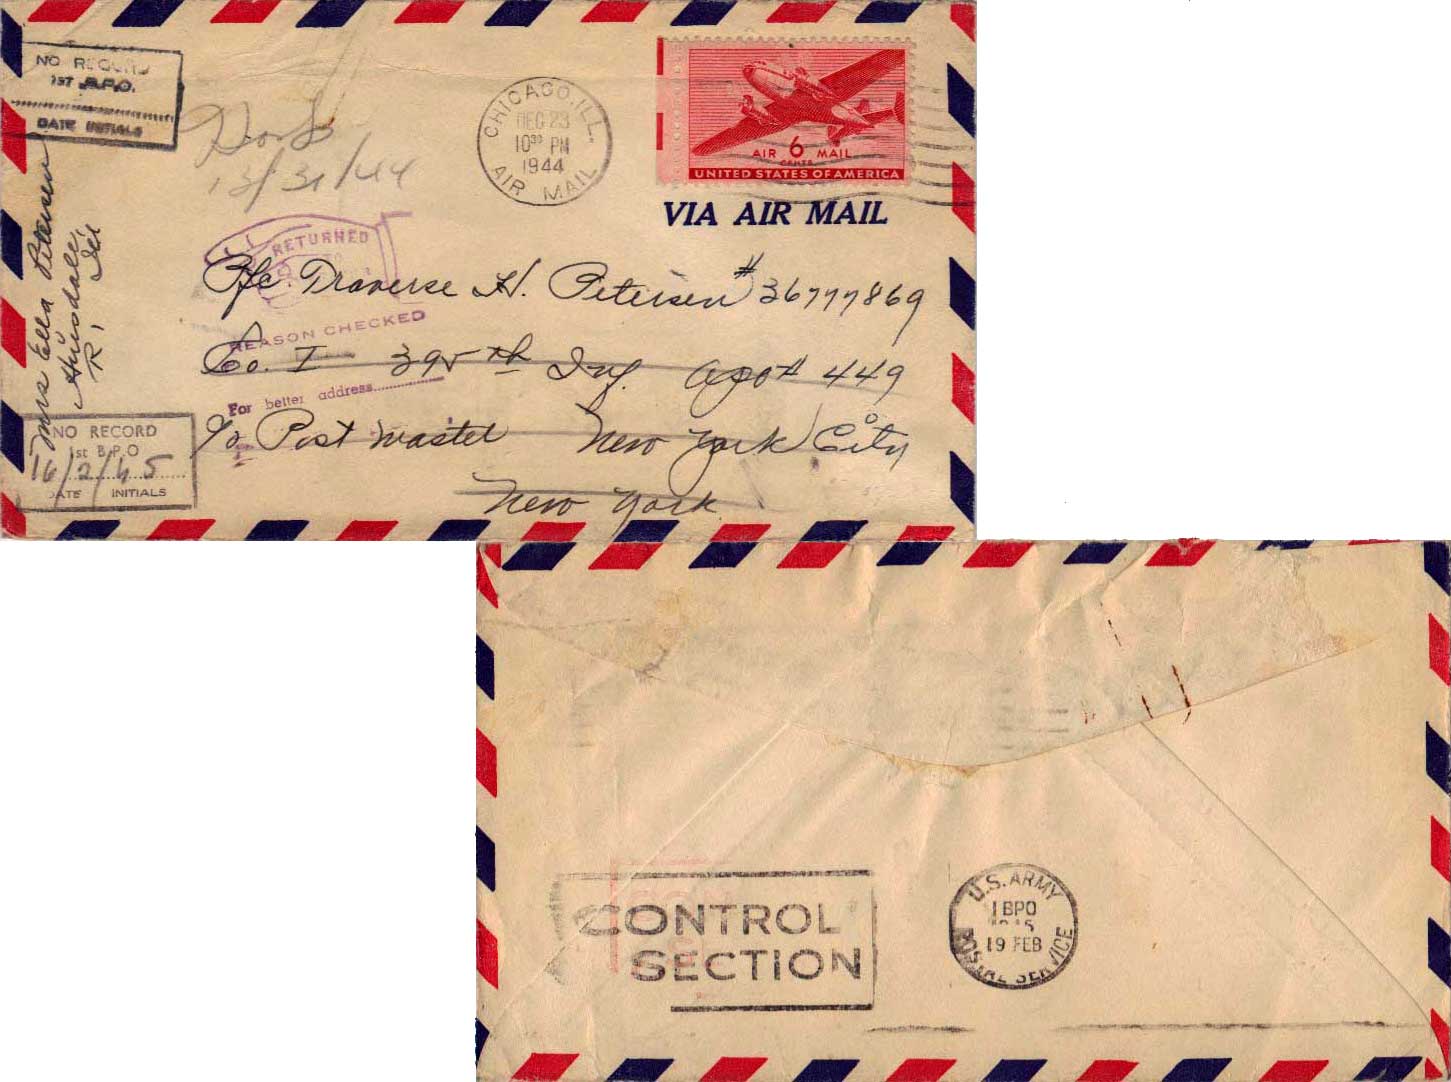 NO RECORD
1ST B.P.O.
DATE INITIALS
Hosp
12/31/44
CHICAGO, ILL.
DEC 23
10 30 PM
1944
AIR MAIL
AIR 6 MAIL
CENTS
UNITED STATES OF AMERICA
VIA AIR MAIL
Mrs Ella Petersen
Hinsdale,
R1 Ill
RETURNED
TO
REASON CHECKED
For better address
Pfc. Traverse H. Petersen # 36777869
Co. I 395th Inf. APO # 449
c/o Post Master New York City
New York
NO RECORD
1st B.P.O
16/2/45
DATE INITIALS
CONTROL
SECTION
U.S. ARMY
1 BPO
1945
19 FEB
POSTAL SERVICE